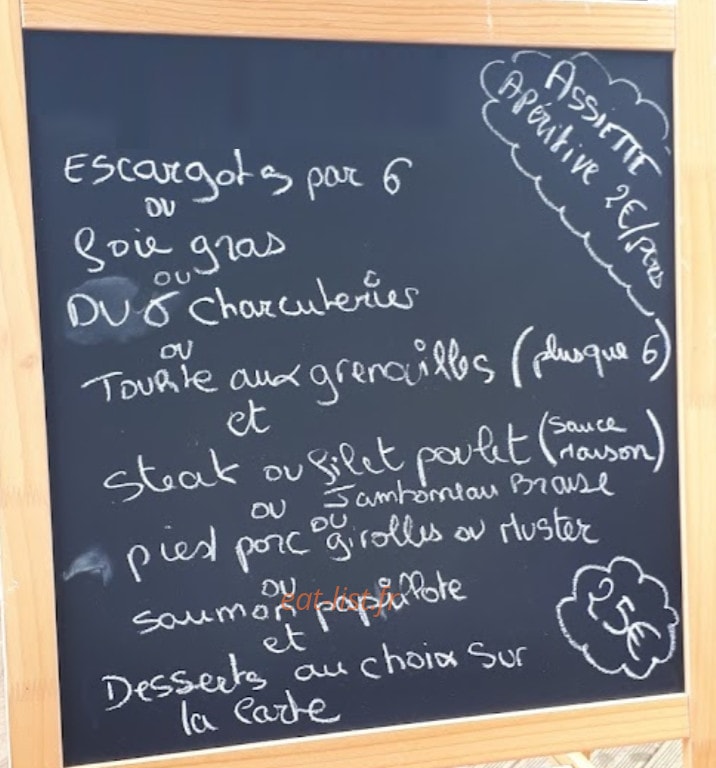 ASSIETTE
APéRitive 2€/pers
Escargots par 6
ou
foie gras
ou
DUO charcuteries
ou
Tourte aux grenouilles (plusque 6)
et
steak ou filet poulet (sauce Maison)
ou Jambonneau Braisé
ou
pied porc girolles ou Muster
ou
saumon papillote
eat-list.fr
et
Desserts au choix sur
la carte
25€